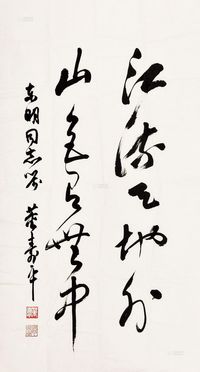 江流天地外
山色有无中
东明同志属 董寿平